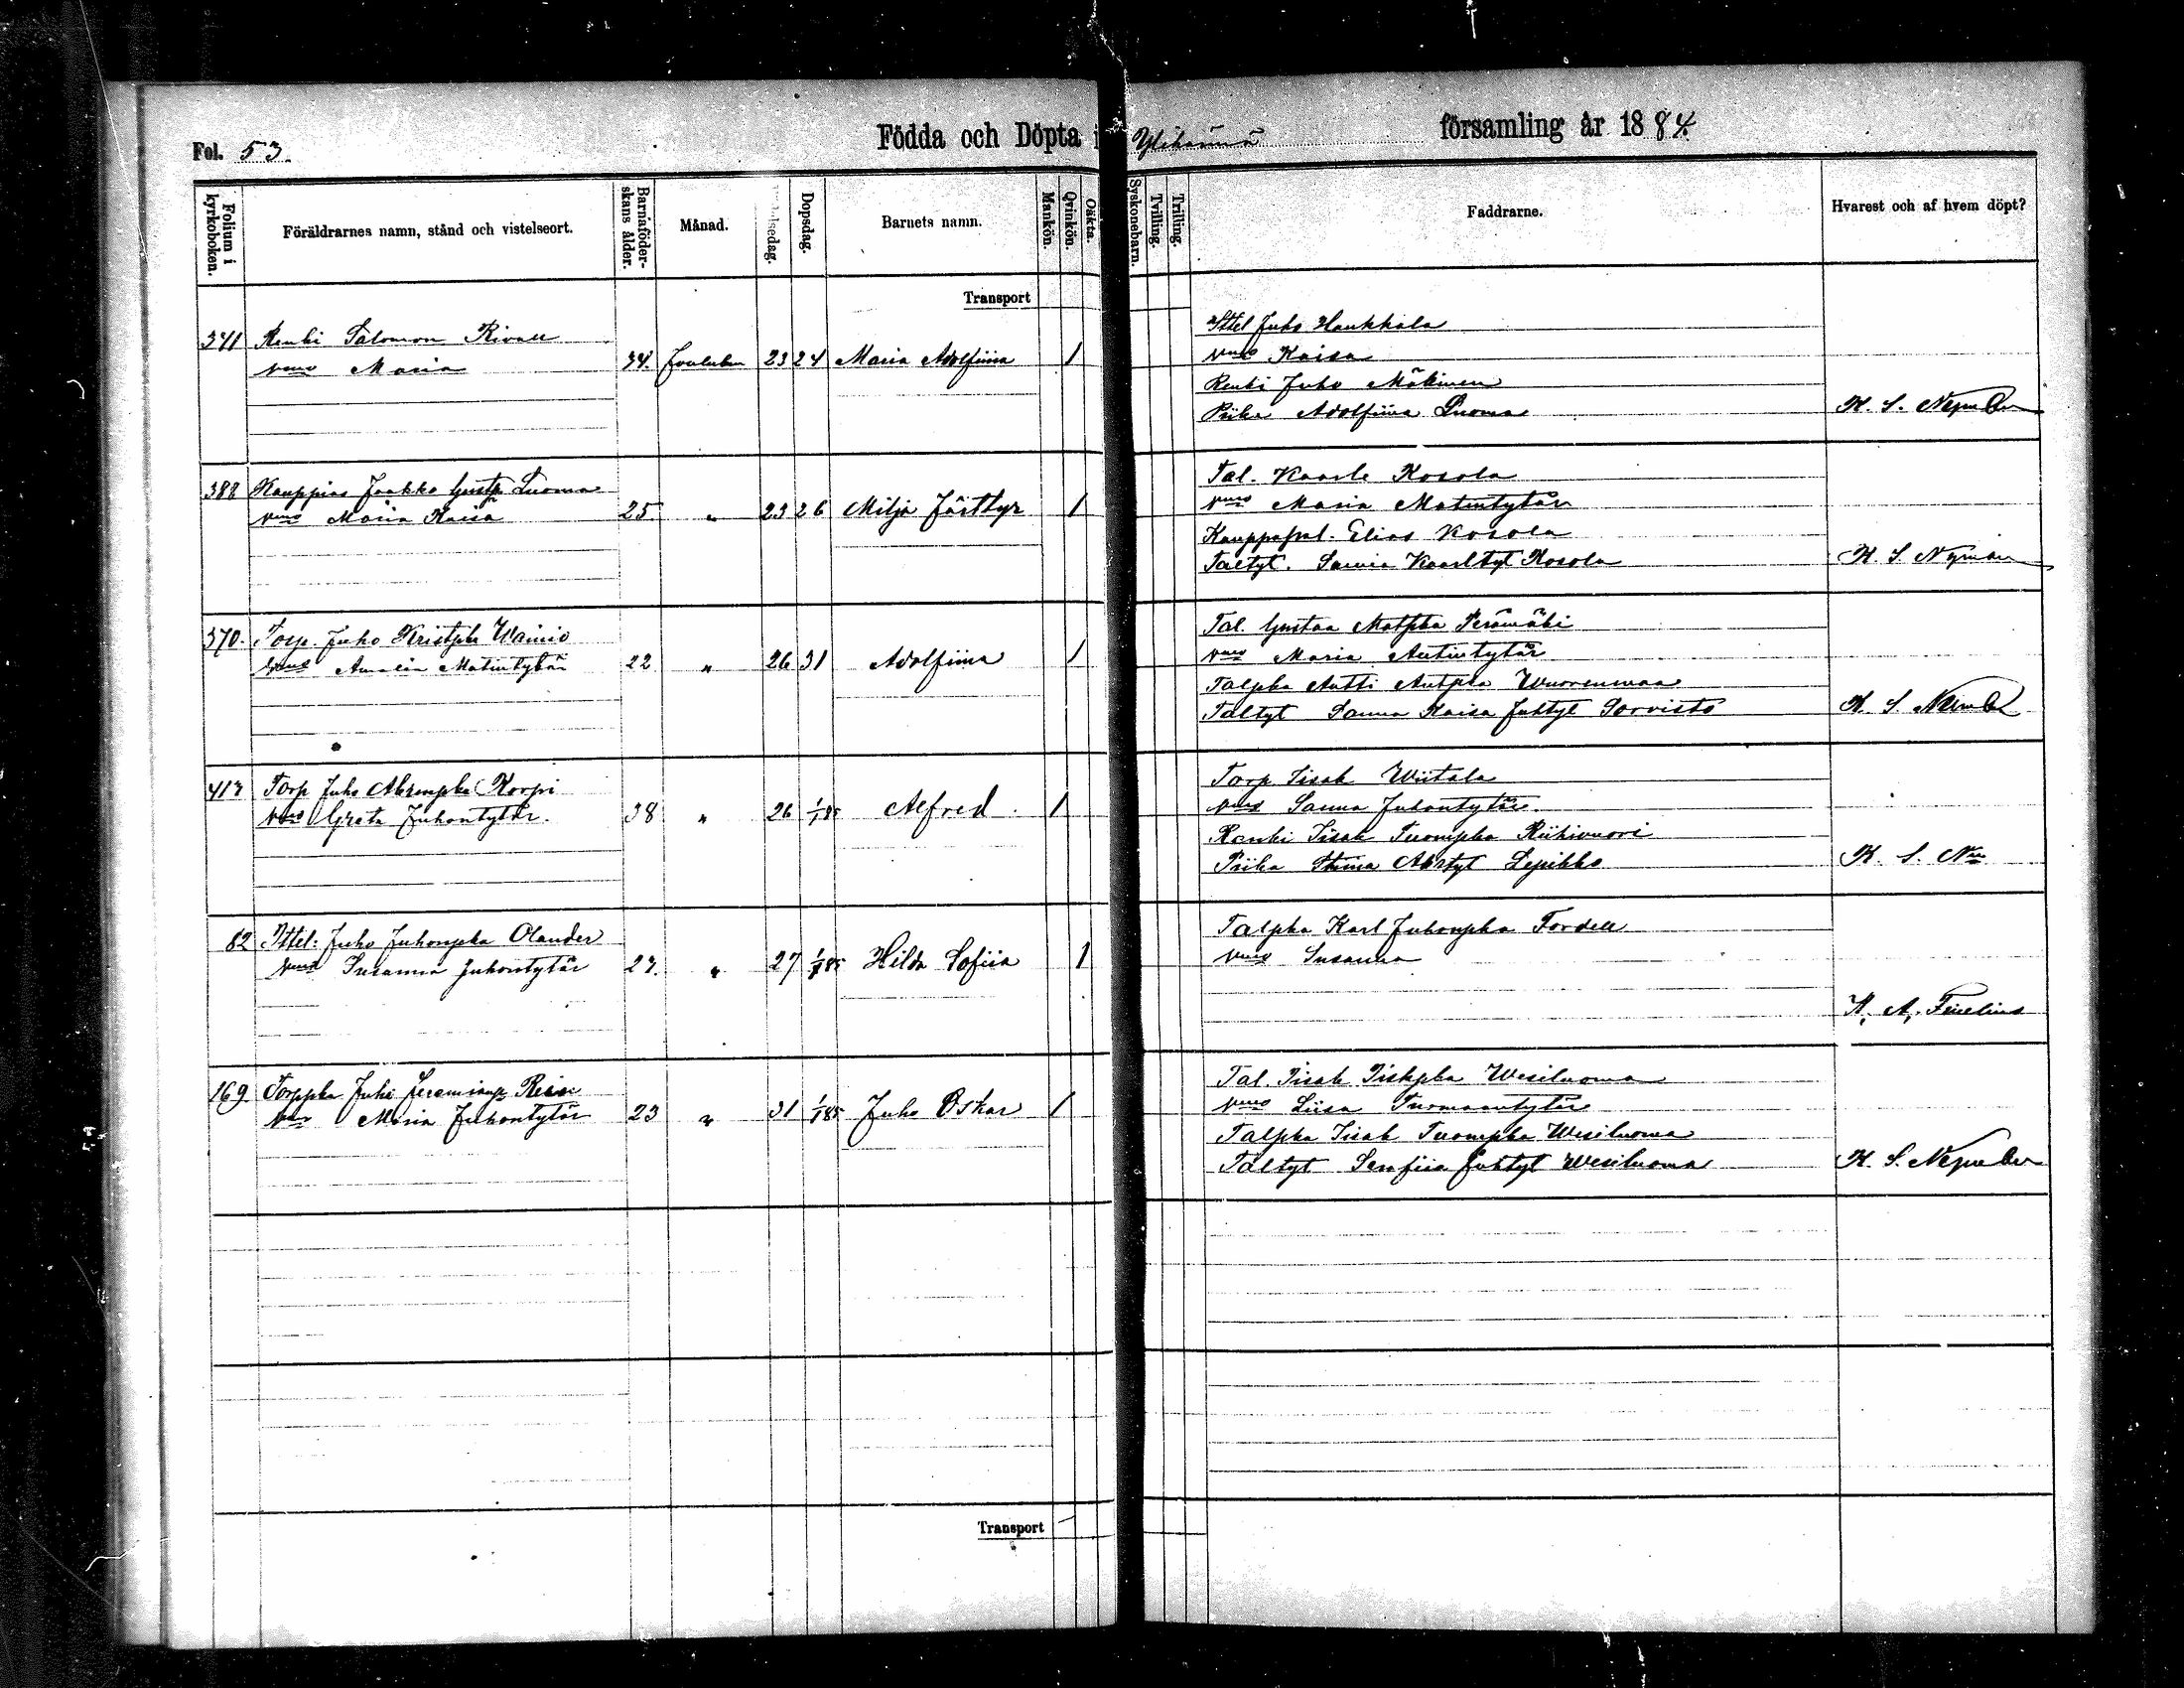 Fol. 53. Födda och Döpta i Ylihärmä församling år 1884.
Folium i kyrkoboken. Föräldrarnes namn, stånd och vistelseort. Barnaföderskans ålder. Månad. Dopsdag. Barnets namn. Mankön. Qvinkön. Oäkta. Syskonebarn. Tvilling. Trilling. Faddrarne. Hvarest och af hvem döpt?
Transport
341 Renki Salomon
vmo Maria 34. Joulukuu 23 24 Maria Adolfiina 1
Ittel Juho Haukkala
vmo Kaisa
Renki Juho Mäkinen
Piika Adolfiina Luoma K. S. Nyman
388 Kauppias Jaakko Gustp. Luoma
vmo Maria Kaisa 25. „ 23 26 Milja 1
Tal. Kaarle Kosola
vmo Maria Matintytär
Kauppapal. Elias Kosola
Taltyt. Kaarltyt Kosola K. S. Nyman
370. Torp. Juho Wainio
vmo Amalia Matintytär 22. „ 26 31 Adolfiina 1
Tal. Gustaa Matpka Perämäki
vmo Maria Antintytär
Talpka Antti Antpka Wuorenmaa
Taltyt Sanna Kaisa Juhtyt Sorvisto K. S. Nyman
Torp Juho Korpi
vmo Greta Juhontytär. 38 „ 26 1/1 85 Alfred. 1
Torp. Iisak Wiitala
vmo Sanna Juhontytär.
Renki Iisak Tuompka Riihivuori
Piika Stiina K. S. Nn
62 Ittel: Juho Juhonpka Olander
vmo Susanna Juhontytär 27. „ 27 1/1 85 Hilda Sofiia 1
Talpka Karl Juhonpka Fordell
vmo Susanna
K. A.
169. Torppka Juho
vmo Maria Juhontytär 23 „ 31 1/1 85 Juho Oskar 1
Tal. Iisak Iiskpka Wesiluoma
vmo Liisa Tuomaantytär
Talpka Iisak Tuompka Wesiluoma
Taltyt Serafiia Juhtyt Wesiluoma K. S. Nyman
Transport